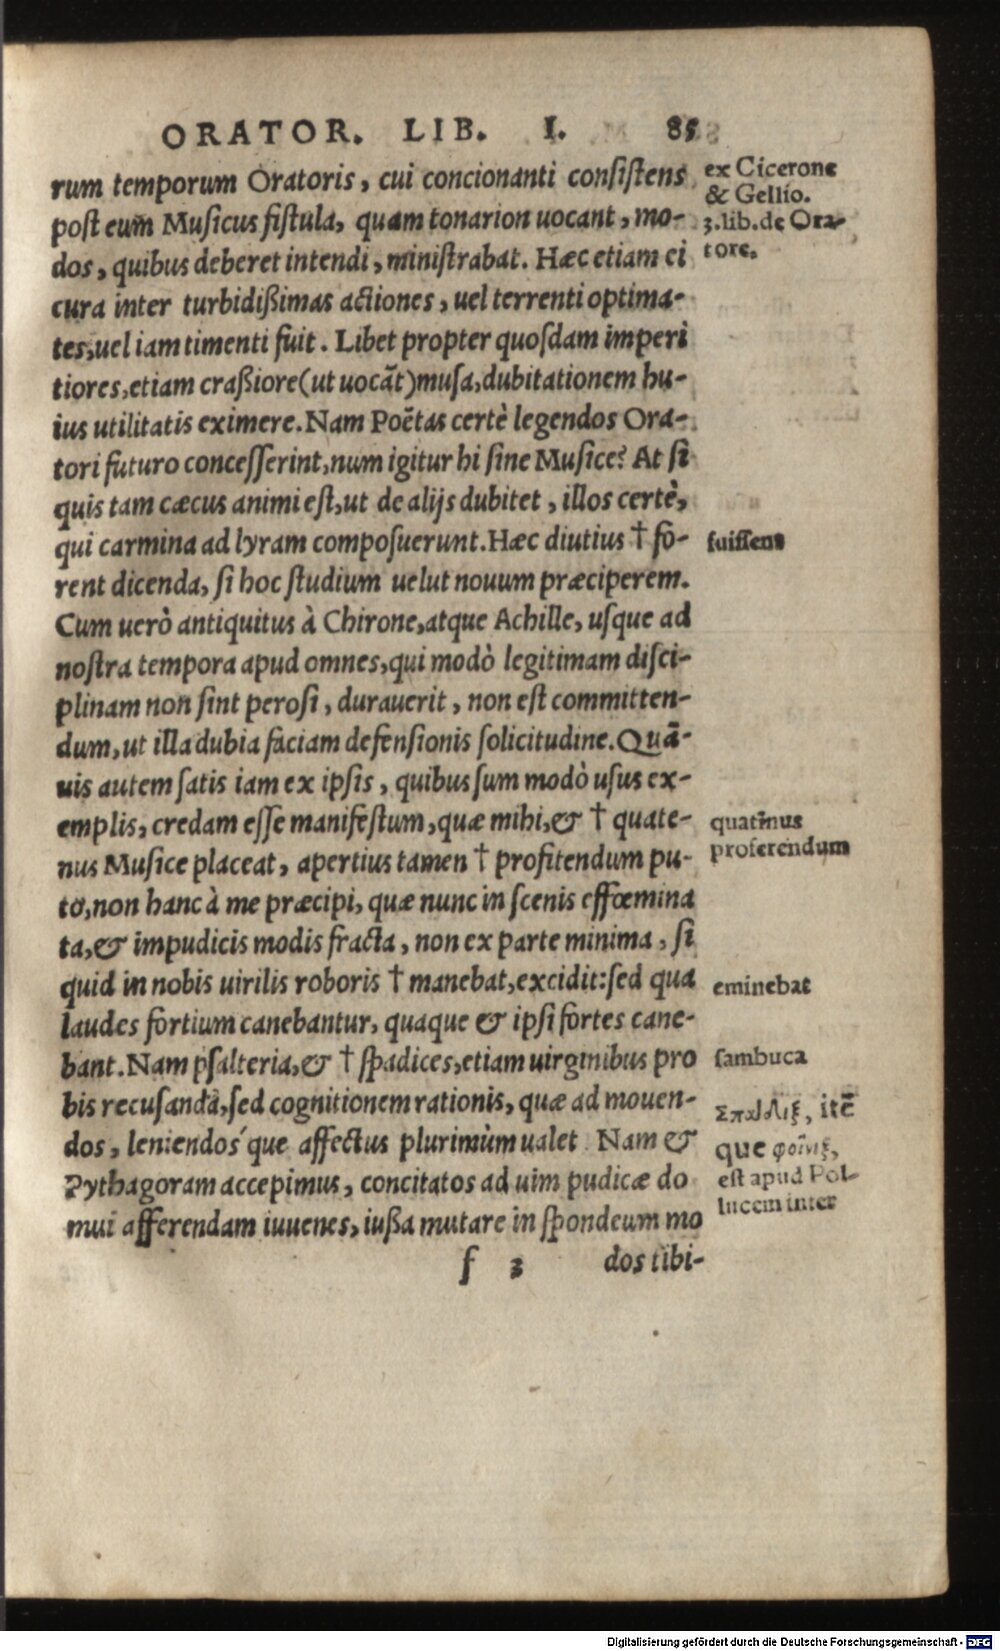 ORATOR. LIB. I. 85
rum temporum Oratoris, cui concionanti consistens
post eum Musicus fistula, quam tonarion uocant, mo-
dos, quibus deberet intendi, ministrabat. Hæc etiam ei
cura inter turbidißimas actiones, uel terrenti optima-
tes, uel iam timenti fuit. Libet propter quosdam imperi
tiores, etiam craßiore (ut uocāt) musa, dubitationem hu-
ius utilitatis eximere. Nam Poëtas certè legendos Ora-
tori futuro concesserint, num igitur hi sine Musice? At si
quis tam cæcus animi est, ut de alijs dubitet, illos certè,
qui carmina ad lyram composuerunt. Hæc diutius † fo-
rent dicenda, si hoc studium uelut nouum præciperem.
Cum uerò antiquitus à Chirone, atque Achille, usque ad
nostra tempora apud omnes, qui modò legitimam disci-
plinam non sint perosi, durauerit, non est committen-
dum, ut illa dubia faciam defensionis solicitudine. Quā-
uis autem satis iam ex ipsis, quibus sum modò usus ex-
emplis, credam esse manifestum, quæ mihi, & † quate-
nus Musice placeat, apertius tamen † profitendum pu-
to, non hanc à me præcipi, quæ nunc in scenis effœmina
ta, & impudicis modis fracta, non ex parte minima, si
quid in nobis uirilis roboris † manebat, excidit: sed qua
laudes fortium canebantur, quaque & ipsi fortes cane-
bant. Nam psalteria, & † spadices, etiam uirginibus pro
bis recusanda, sed cognitionem rationis, quæ ad mouen-
dos, leniendos´que affectus plurimùm ualet. Nam &
Pythagoram accepimus, concitatos ad uim pudicæ do
mui afferendam iuuenes, iußa mutare in spondeum mo
f 3 dos tibi-
ex Cicerone
& Gellio.
3. lib. de Ora-
tore.
fuissent
quatinus
proferendum
eminebat
sambuca
Σπάδιξ, itē
que φοῖνιξ,
est apud Pol-
lucem inter
Digitalisierung gefördert durch die Deutsche Forschungsgemeinschaft - DFG